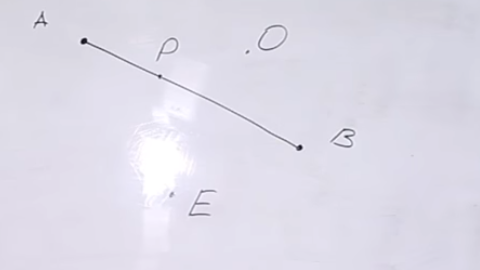 A
P
O
B
E